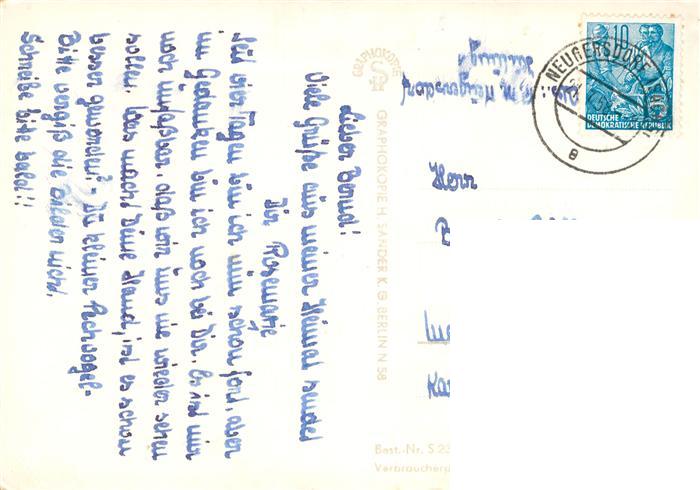 Lieber Bernd!
Viele Grüße aus meiner Heimat sendet
Dir Rosemarie
Seit vier Tagen bin ich nun schon fort, aber
im Gedanken bin ich noch bei Dir. Es ist mir
noch unfaßbar, daß wir uns nie wieder sehen
sollen. Was macht Deine Hand, ist es schon
besser geworden? - Du kleiner Pechvogel -
Bitte vergiß die Bilder nicht.
Schreibe bitte bald!!
GRAPHOKOPIE
GRAPHOKOPIE H. SANDER K. G. BERLIN N 58
Neugersdorf
NEUGERSDORF
10
DEUTSCHE
DEMOKRATISCHE REPUBLIK
Herr
Best.-Nr. S 23
Verbraucherp